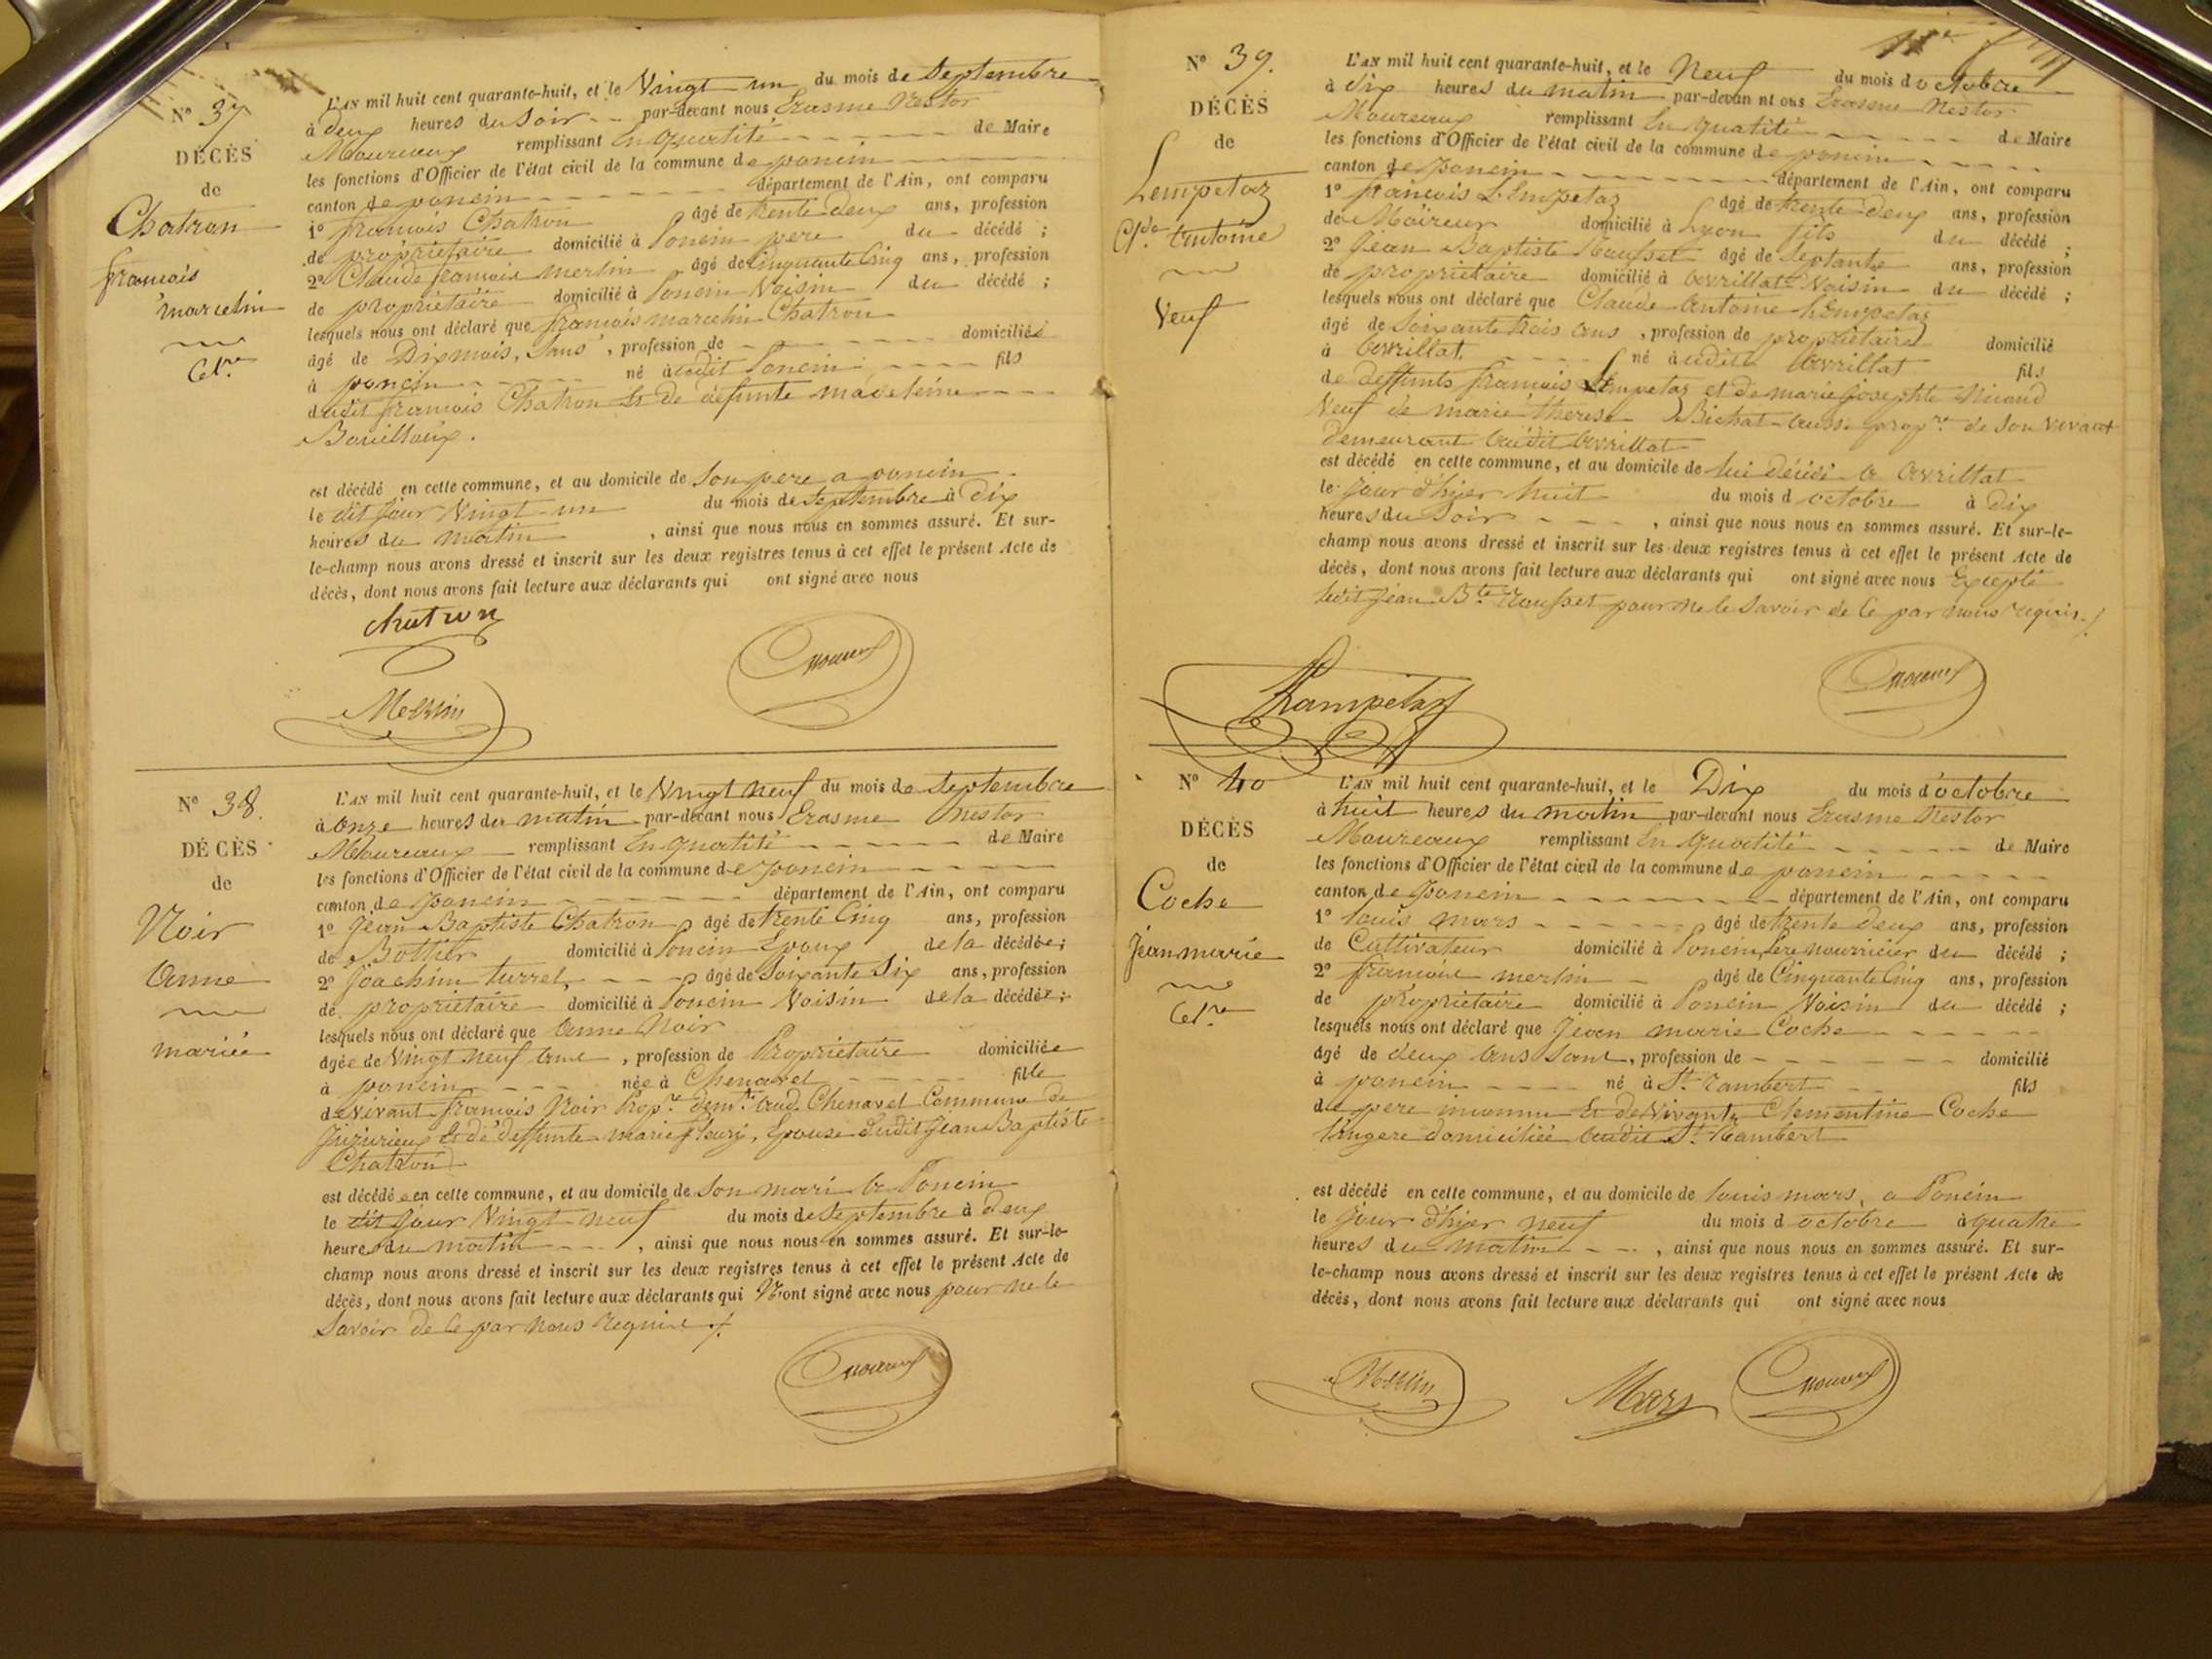 N° 37
DÉCÈS
de
Chatron
francois
marcelin
Celre
L'AN mil huit cent quarante-huit, et le Vingt un du mois de Septembre
à deux heures du Soir par-devant nous Erasme Nestor
Moureaux remplissant En qualité de Maire
les fonctions d'Officier de l'état civil de la commune de poncin
canton de poncin département de l'Ain, ont comparu
1° francois Chatron âgé de trente deux ans, profession
de propriétaire domicilié à Poncin pere du décédé ;
2° Claude francois merlin âgé de Cinquante Cinq ans, profession
de propriétaire domicilié à Poncin Voisin du décédé ;
lesquels nous ont déclaré que francois marcelin Chatron
âgé de Dix mois, Sans, profession de domicilié
à poncin né audit Poncin fils
dudit francois Chatron Et de défunte madeleine
Bouilloux.
est décédé en cette commune, et au domicile de Son pere a poncin
le dit jour Vingt un du mois de Septembre à Dix
heures du matin, ainsi que nous nous en sommes assuré. Et sur-
le-champ nous avons dressé et inscrit sur les deux registres tenus à cet effet le présent Acte de
décès, dont nous avons fait lecture aux déclarants qui ont signé avec nous
chatron
Merlin
N° 38.
DÉCÈS
de
Noir
Anne
mariée
L'AN mil huit cent quarante-huit, et le Vingt neuf du mois de Septembre
à Onze heures du matin par-devant nous Erasme Nestor
Moureaux remplissant En qualité de Maire
les fonctions d'Officier de l'état civil de la commune de poncin
canton de poncin département de l'Ain, ont comparu
1° Jean Baptiste Chatron âgé de trente Cinq ans, profession
de Bottier domicilié à Poncin Epoux de la décédée ;
2° Joachim turrel âgé de Soixante Six ans, profession
de propriétaire domicilié à Poncin Voisin de la décédée ;
lesquels nous ont déclaré que Anne Noir
âgée de Vingt neuf ans, profession de Propriétaire domiciliée
à poncin née à Chenavel fille
de Vivant francois Noir Propre demt aud. Chenavel Commune de
Jujurieux Et de deffunte marie fleury, Epouse dudit Jean Baptiste
Chatron
est décédée en cette commune, et au domicile de Son mari a Poncin
le dit jour Vingt neuf du mois de Septembre à deux
heures du matin, ainsi que nous nous en sommes assuré. Et sur-le-
champ nous avons dressé et inscrit sur les deux registres tenus à cet effet le présent Acte de
décès, dont nous avons fait lecture aux déclarants qui N'ont signé avec nous pour ne le
Savoir de Ce par nous requis
N° 39.
DÉCÈS
de
Lempetaz
Cde Antoine
Veuf
L'AN mil huit cent quarante-huit, et le Neuf du mois d'octobre
à dix heures du matin par-devan nt ous Erasme Nestor
Moureaux remplissant En qualité de Maire
les fonctions d'Officier de l'état civil de la commune de poncin
canton de poncin département de l'Ain, ont comparu
1° francois LEmpetaz âgé de trente deux ans, profession
de domicilié à Lyon fils du décédé ;
2° Jean Baptiste âgé de Septante ans, profession
de propriétaire domicilié à Avrillat Voisin du décédé ;
lesquels nous ont déclaré que Claude Antoine LEmpetaz
âgé de Soixante trois ans, profession de propriétaire domicilié
à Avrillat né audit Avrillat fils
de deffunts francois LEmpetaz et de marie Josephte
Veuf de marie therese Bichat aussi propre de Son vivant
demeurant audit Avrillat
est décédé en cette commune, et au domicile de lui décédé a Avrillat
le jour d'hier huit du mois d'octobre à Dix
heures du Soir, ainsi que nous nous en sommes assuré. Et sur-le-
champ nous avons dressé et inscrit sur les deux registres tenus à cet effet le présent Acte de
décès, dont nous avons fait lecture aux déclarants qui ont signé avec nous Excepté
ledit Jean Bte pour ne le Savoir de Ce par nous requis
Lampetaz
N° 40
DÉCÈS
de
Coche
Jean marie
Celre
L'AN mil huit cent quarante-huit, et le Dix du mois d'octobre
à huit heures du matin par-devant nous Erasme Nestor
Moureaux remplissant En qualité de Maire
les fonctions d'Officier de l'état civil de la commune de poncin
canton de poncin département de l'Ain, ont comparu
1° louis mars âgé de trente deux ans, profession
de Cultivateur domicilié à Poncin, Pere nourricier du décédé ;
2° francois merlin âgé de Cinquante Cinq ans, profession
de propriétaire domicilié à Poncin Voisin du décédé ;
lesquels nous ont déclaré que Jean marie Coche
âgé de deux ans Sans, profession de domicilié
à poncin né à St Rambert fils
de pere inconnu Et de Vivante Clementine Coche
lingere domiciliée audit St Rambert
est décédé en cette commune, et au domicile de louis mars, a Poncin
le jour d'hier neuf du mois d'octobre à quatre
heures du matin, ainsi que nous nous en sommes assuré. Et sur-
le-champ nous avons dressé et inscrit sur les deux registres tenus à cet effet le présent Acte de
décès, dont nous avons fait lecture aux déclarants qui ont signé avec nous
Merlin Mars